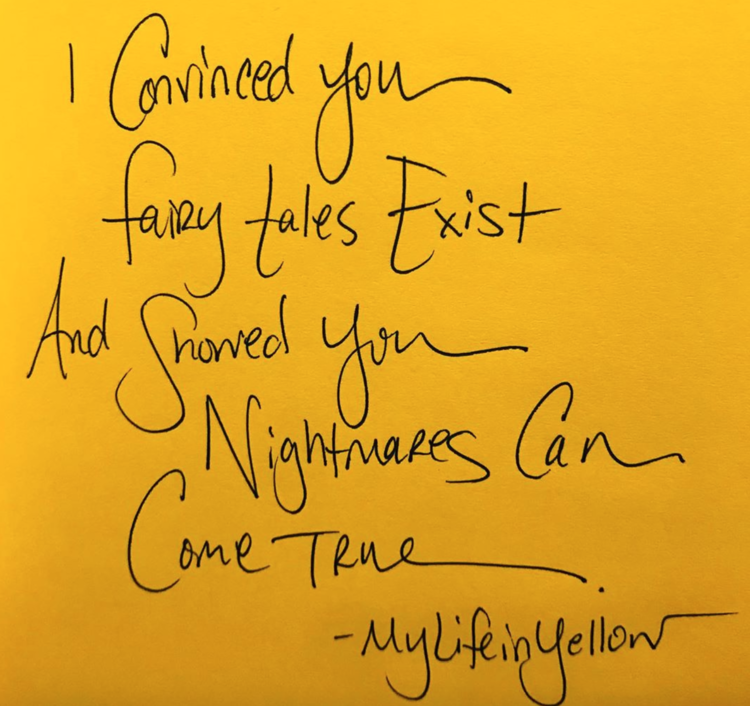 I Convinced you
fairy tales Exist
And Showed you
Nightmares Can
Come True.
-MyLifeinYellow